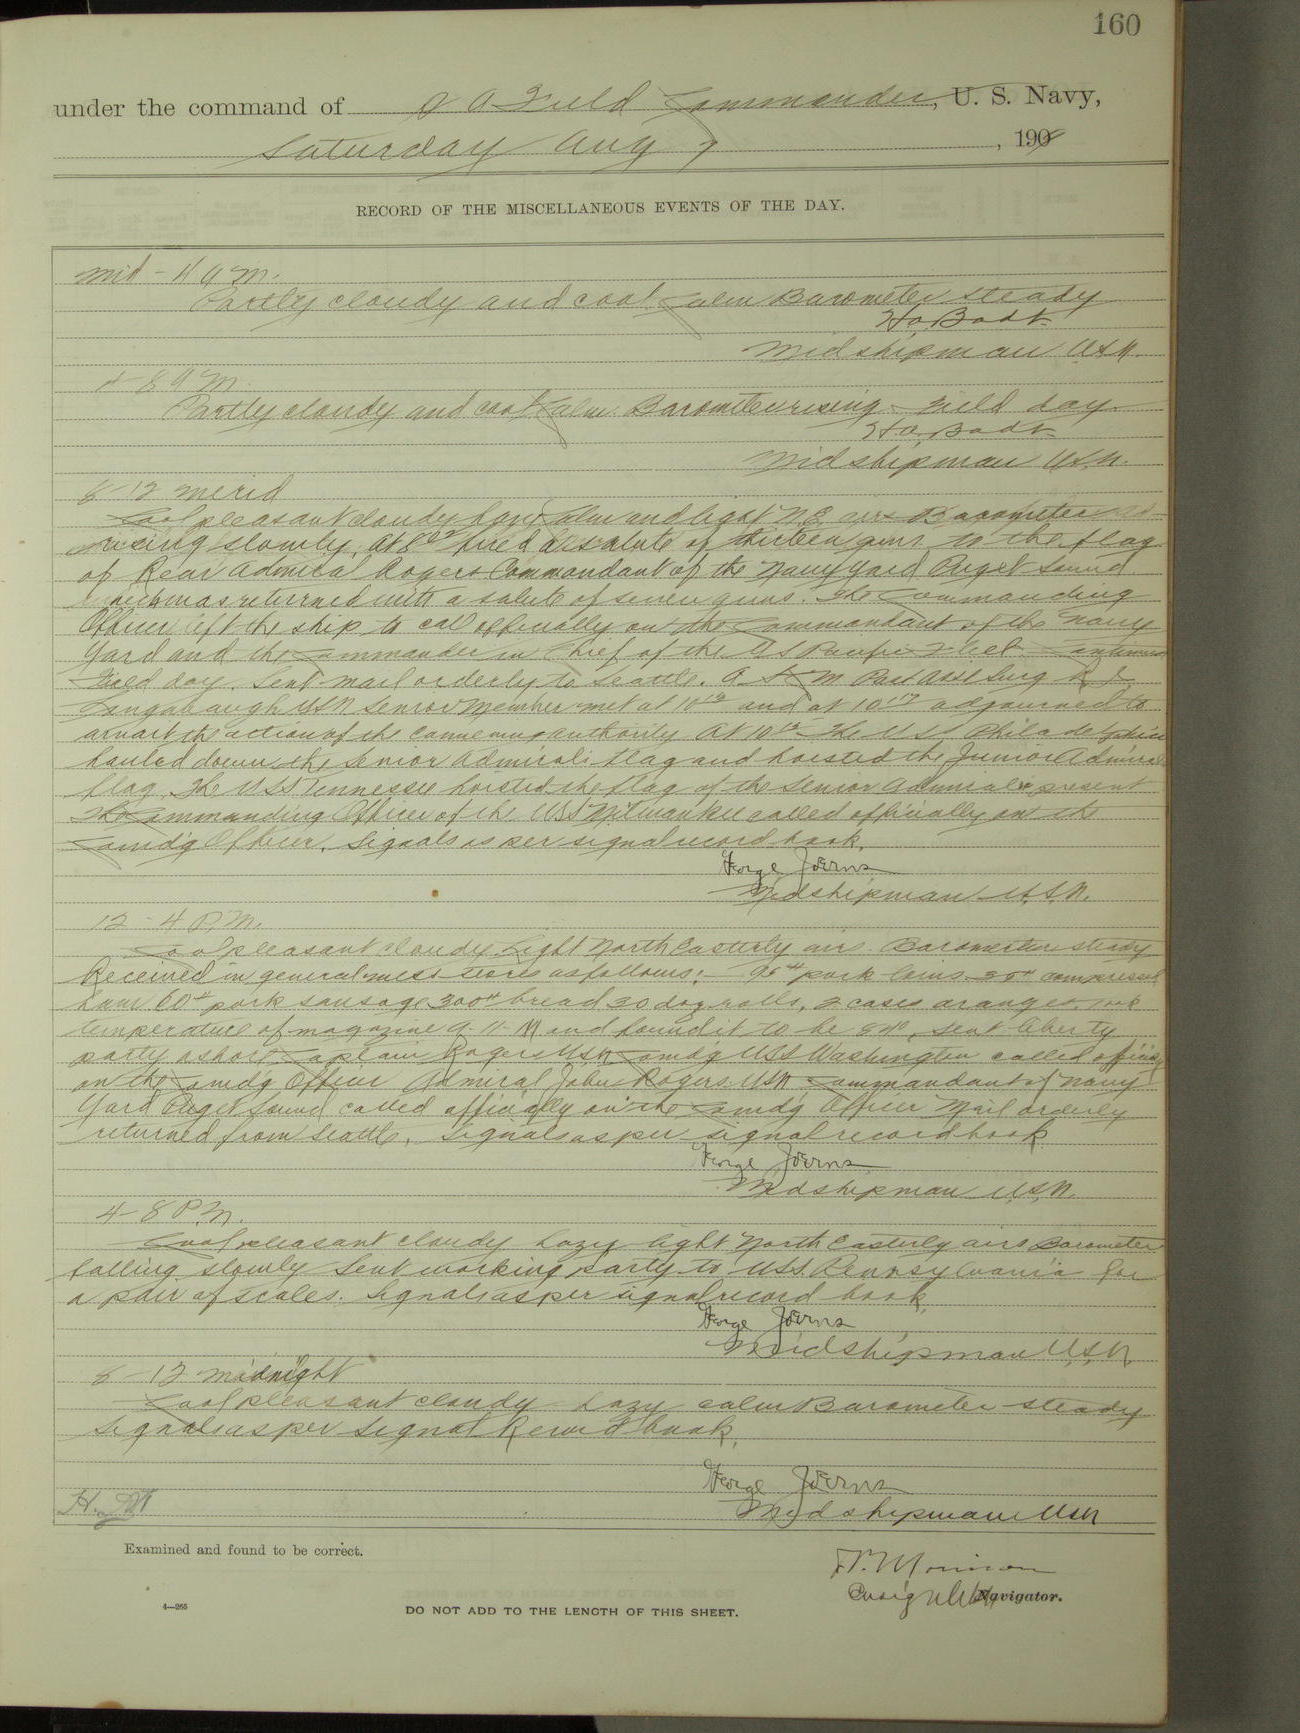 160
under the command of Commander, U. S. Navy,
Saturday Aug 7, 190
RECORD OF THE MISCELLANEOUS EVENTS OF THE DAY.
Mid - 4 A M.
Partly cloudy and cool. Calm Barometer steady
Midshipman U.S.N.
4-8 A M.
Partly cloudy and cool. Calm. Barometer rising. Field day.
Midshipman U.S.N.
8-12 Merid
Cool pleasant cloudy hazy Calm and light N.E. airs Barometer
rising slowly. At fired a salute of thirteen guns to the flag
of Rear Admiral Rogers Commandant of the Navy Yard Puget Sound
which was returned with a salute of seven guns. The Commanding
Officer left the ship to call officially on the Commandant of the Navy
Yard and the Commander in Chief of the US Pacific Fleet. Continued
Field day. Sent mail orderly to Seattle. A Past Asst Surg
Longabaugh USN Senior Member met at and at adjourned to
await the action of the convening authority At The USS Philadelphia
hauled down the Senior Admirals flag and hoisted the Junior Admirals
flag. The USS Tennessee hoisted the flag of the Senior Admiral present
The Commanding Officer of the USS Milwaukee called officially on the
Comdg Officer. Signals as per signal record book.
George Joerns
Midshipman U.S.N.
12-4 P.M.
Cool pleasant cloudy. Light North Easterly airs. Barometer steady
Received in general mess stores as follows: 95# pork loins compressed
ham 60# pork sausage 300# bread 30 doz rolls, 2 cases oranges, took
temperature of magazine and found it to be sent liberty
party ashore Captain Rogers USN Comdg USS Washington called officially
on the Comdg Officer Admiral John Rogers USN Commandant of Navy
Yard Puget Sound called officially on the Comdg Officer Mail orderly
returned from Seattle. Signals as per signal record book
George Joerns
Midshipman U.S.N.
4-8 P.M.
Cool pleasant cloudy hazy light North Easterly airs Barometer
falling slowly Sent working party to USS. Pennsylvania for
a pair of scales. Signals as per signal record book.
George Joerns
Midshipman U.S.N.
8-12 Midnight
Cool pleasant cloudy hazy calm Barometer steady
Signals as per Signal Record book.
George Joerns
Midshipman USN
Examined and found to be correct.
Ensign USN Navigator.
4—265
DO NOT ADD TO THE LENGTH OF THIS SHEET.